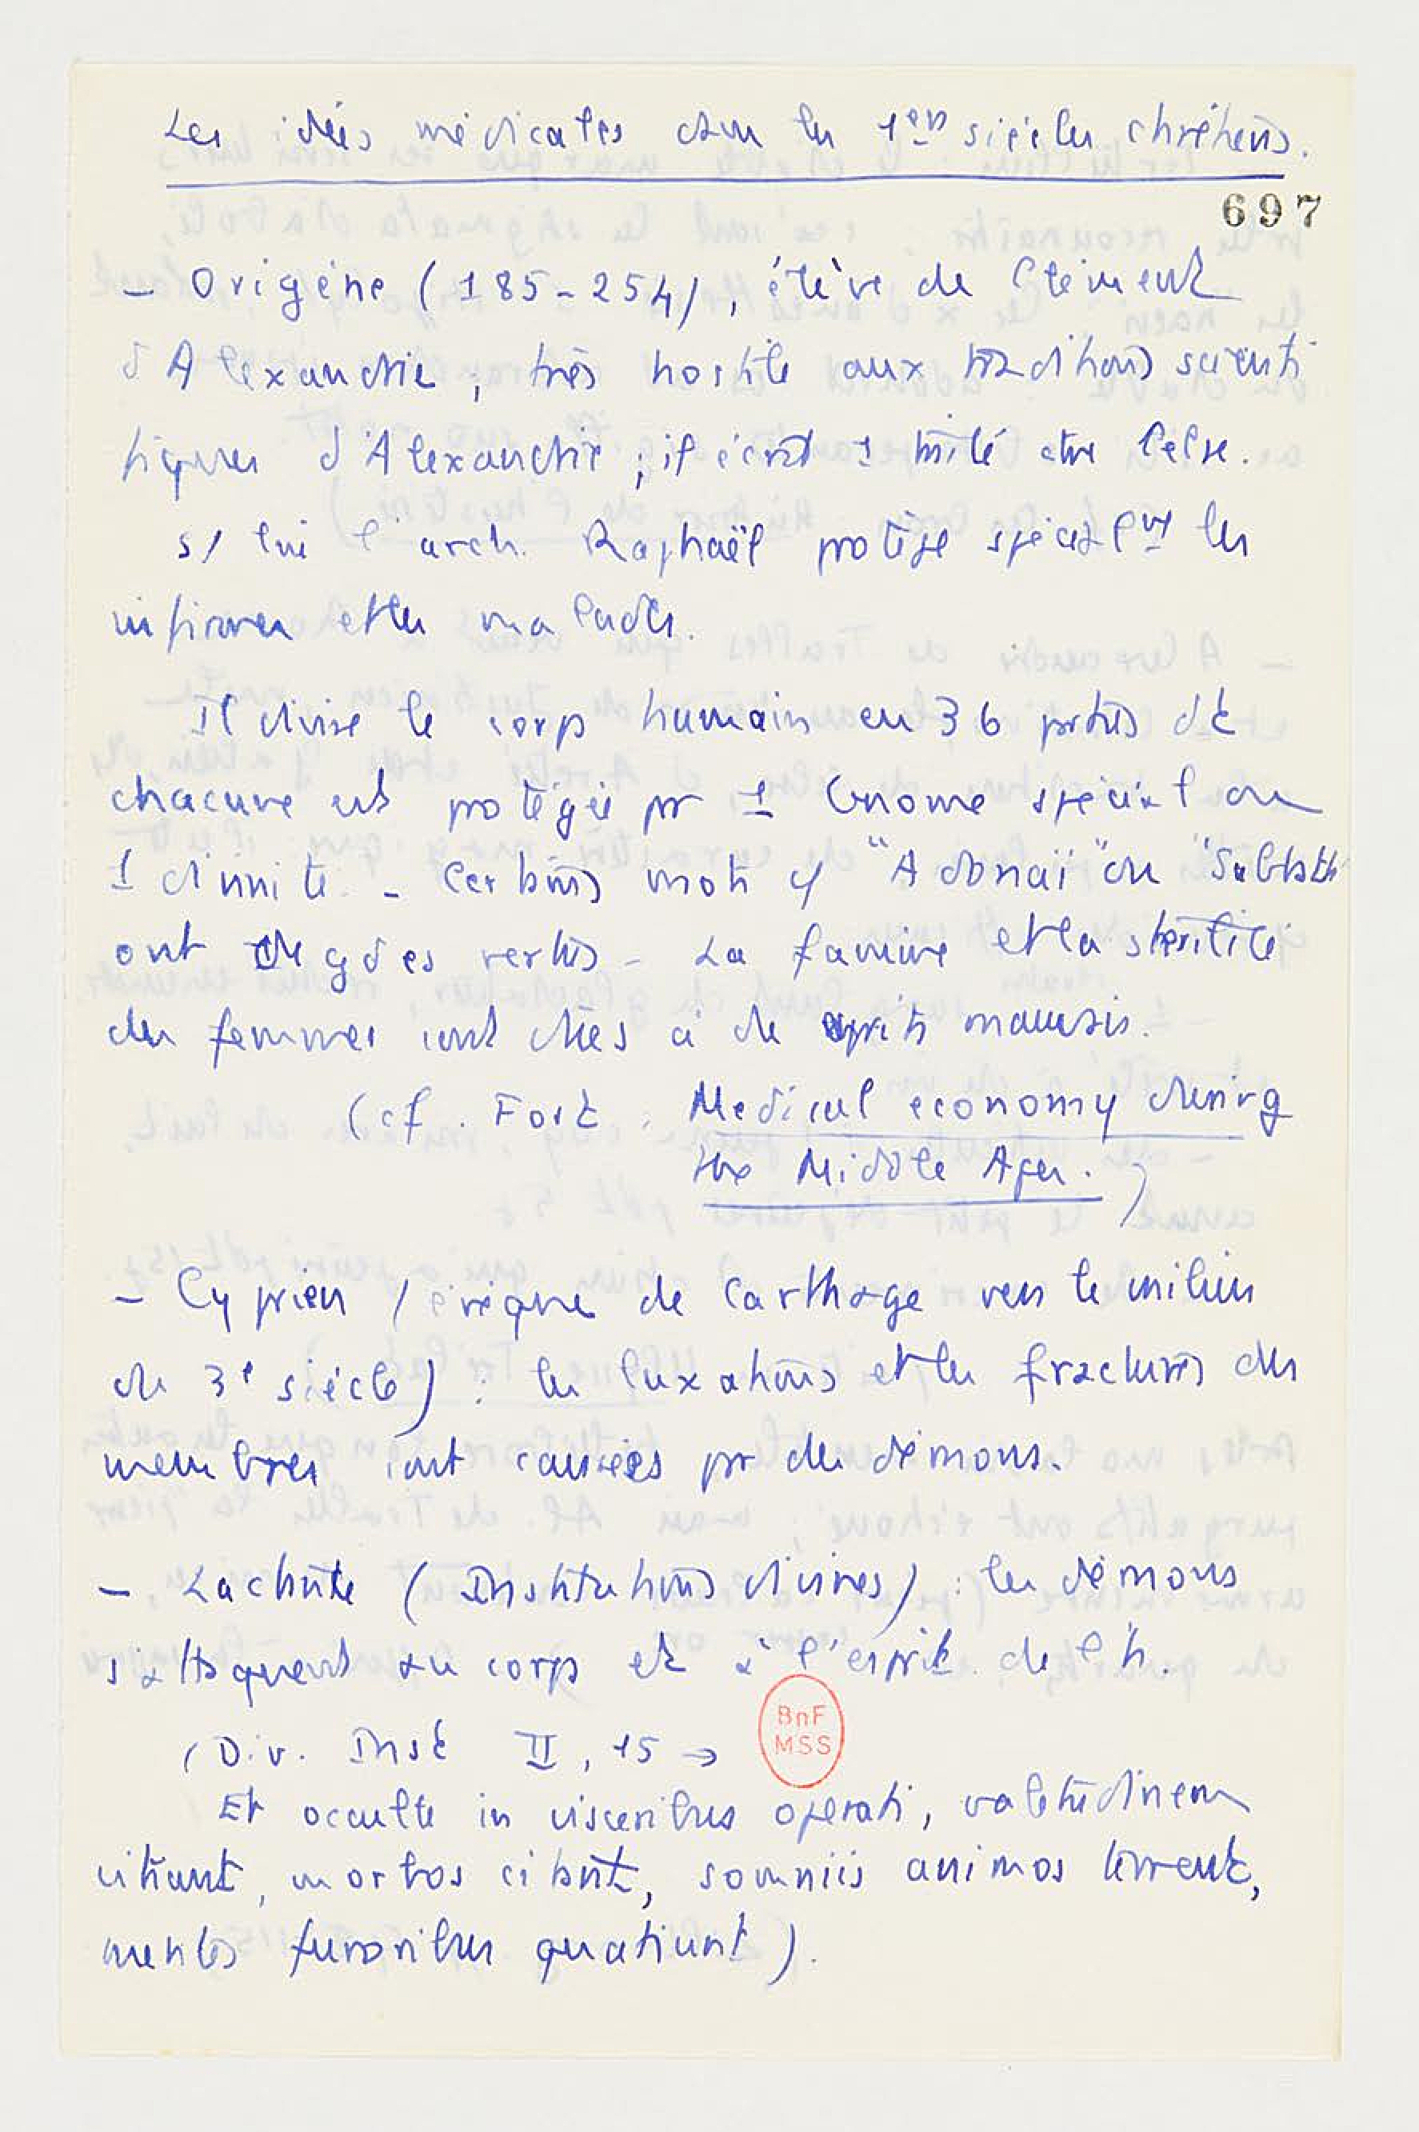 Les idées médicales dans les 1ers siècles chrétiens.
697
– Origène (185-254), élève de Clément
d'Alexandrie ; très hostile aux traditions scienti
fiques d'Alexandrie ; il écrit 1 traité ctre Celse.
s/ lui l'arch. Raphaël protège spécialemt les
infirmes et les malades.
Il divise le corps humain en 36 parties dt
chacune est protégée pr 1 Gnome spécial ou
1 divinité. – Certains mots cf "Adonaï" ou "Sabbath"
ont de gdes vertus – La famine et la stérilité
des femmes sont dues à de esprits mauvais.
(cf. Fort. Medical economy during
the Middle Ages.)
– Cyprien (évêque de Carthage vers le milieu
du 3e siècle) : les luxations et les fractures des
membres sont causées pr des démons.
– Lactante (Institutions divines) : les démons
s'attaquent au corps et à l'esprit de l'h.
(Div. Inst II, 15 →
BnF
MSS
Et occulte in visceribus operati, valetudinem
vitiant, morbos citant, somniis animos terrent,
mentes furoribus quatiunt).